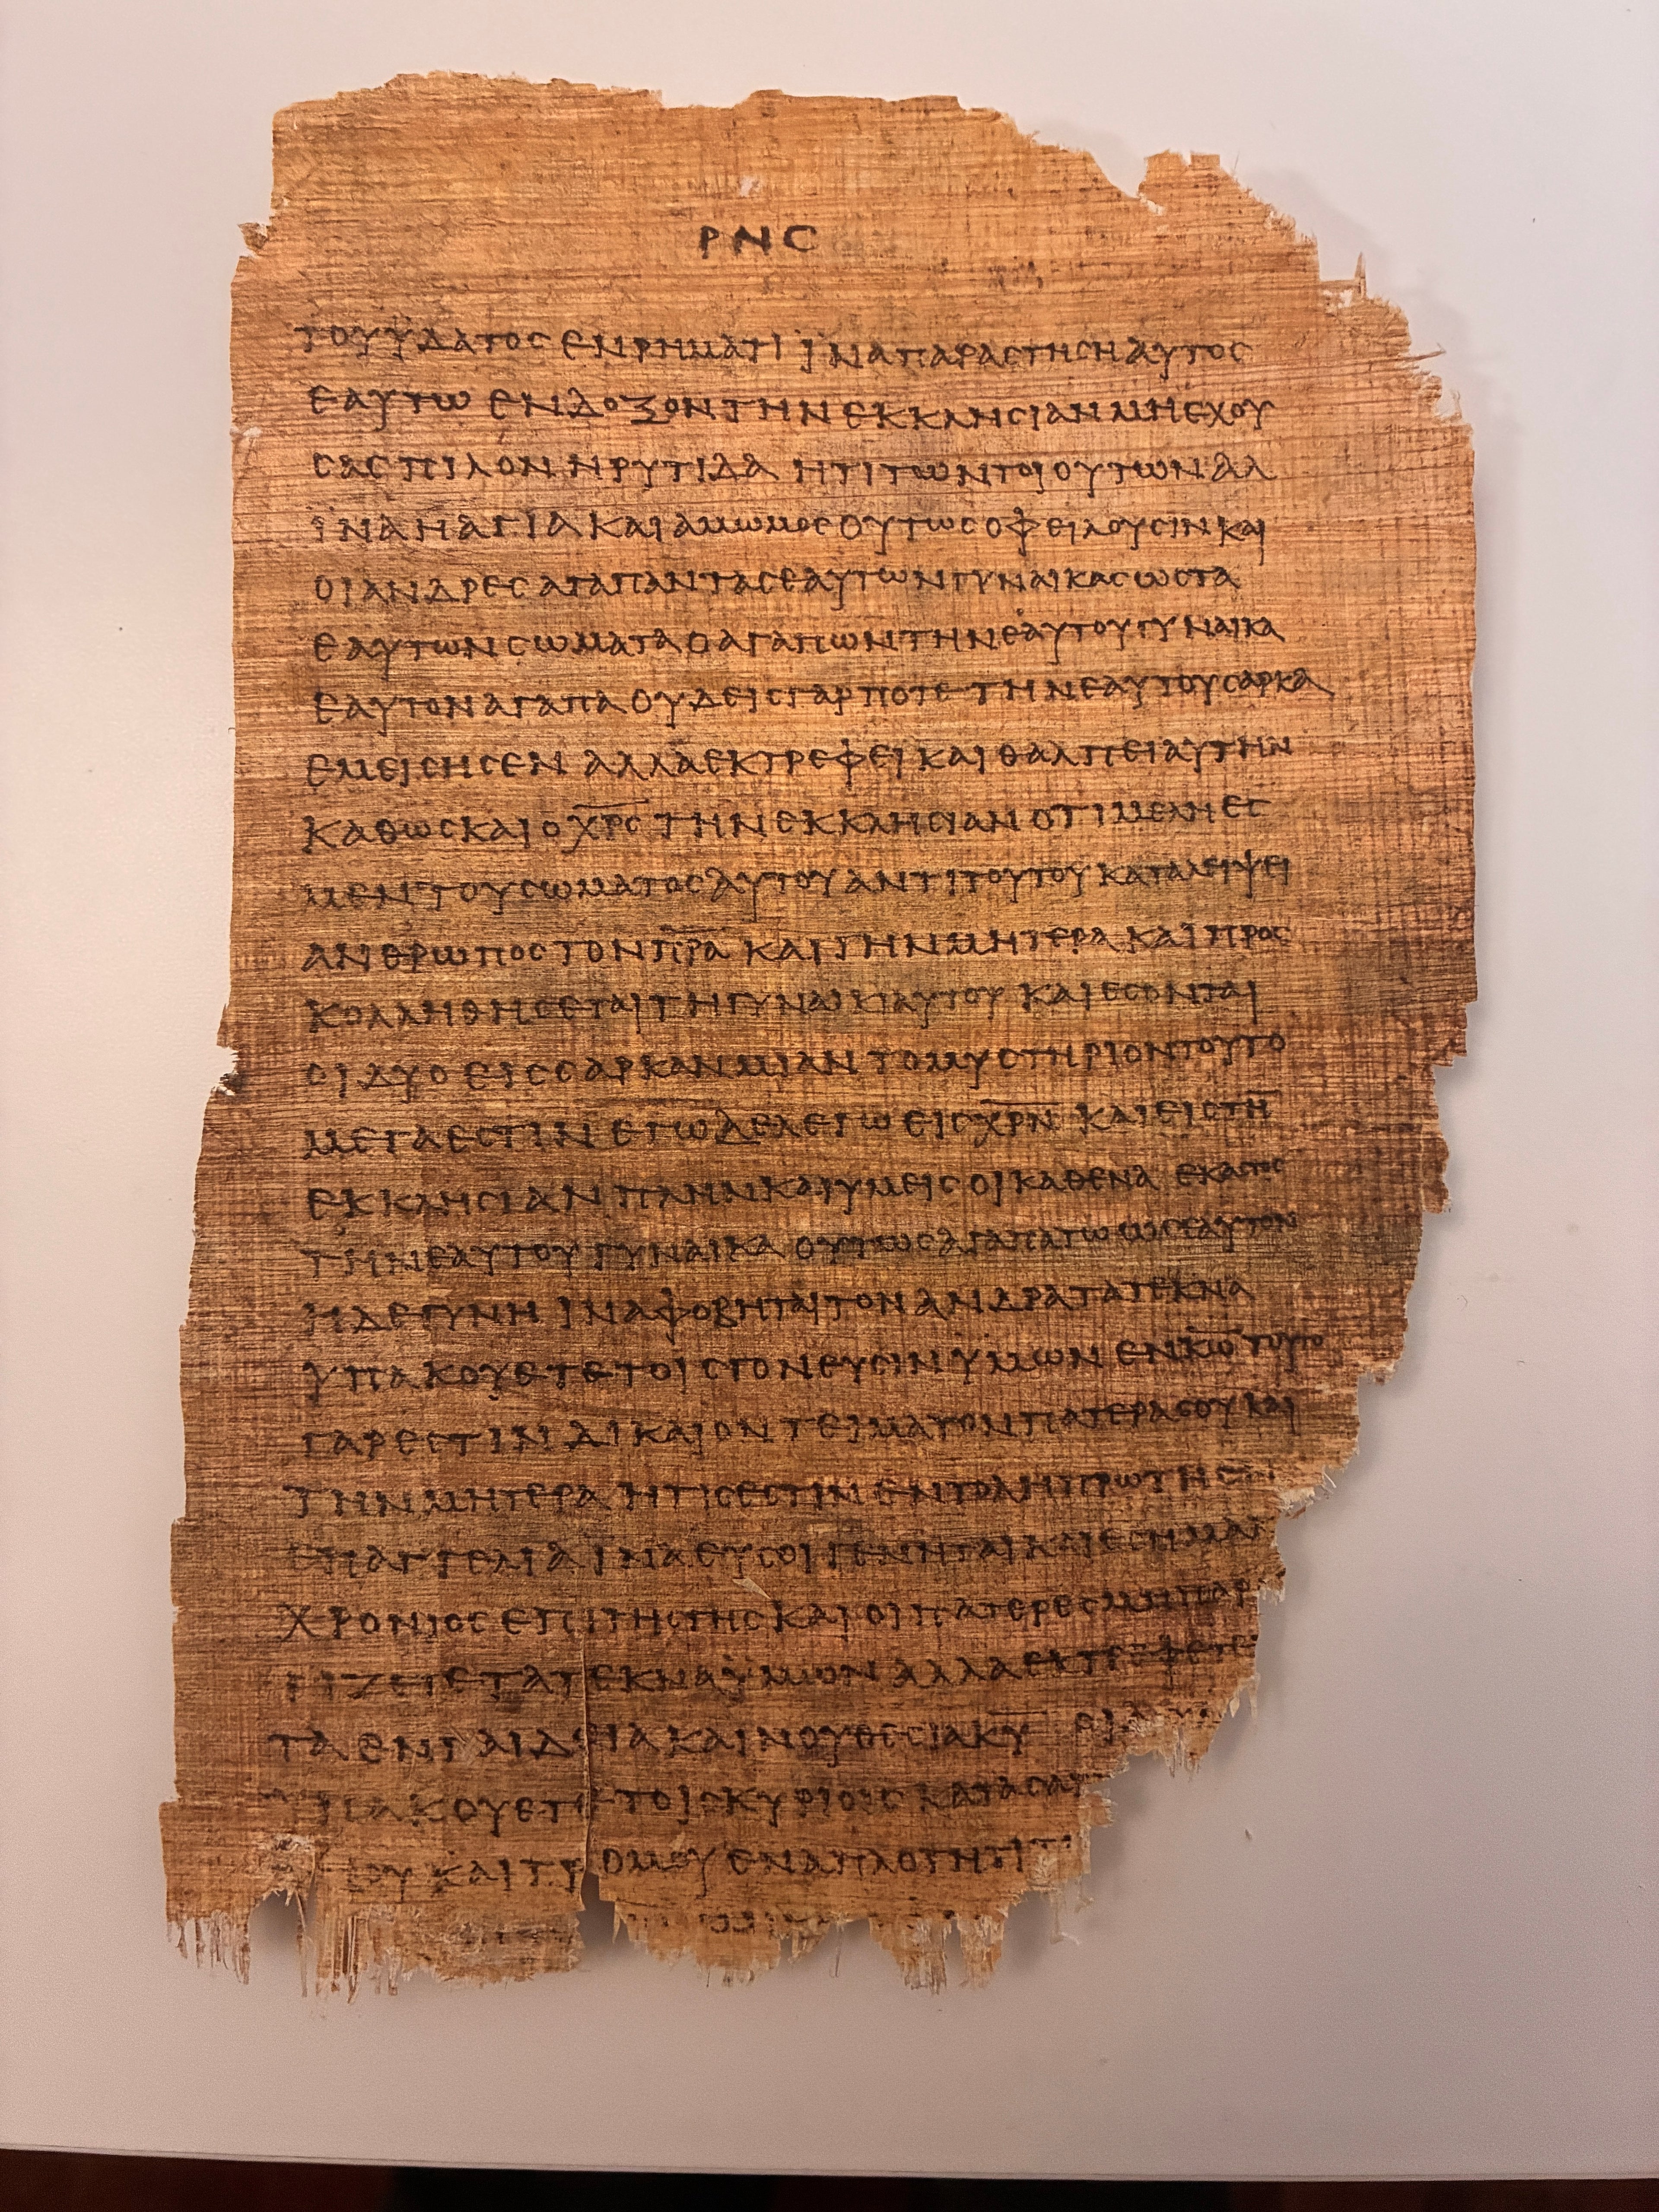 ΡΝϹ
ΤΟΥΫΔΑΤΟϹ ΕΝΡΗΜΑΤΙ ΪΝΑΠΑΡΑϹΤΗϹΗΑΥΤΟϹ
ΕΑΥΤΩ ΕΝΔΟΞΟΝΤΗΝΕΚΚΛΗϹΙΑΝΜΗΕΧΟΥ
ϹΑϹΠΙΛΟΝΗΡΥΤΙΔΑ ΗΤΙΤΩΝΤΟΙΟΥΤΩΝΑΛ
ΪΝΑΗΑΓΙΑΚΑΙΑΜΩΜΟϹΟΥΤΩϹΟΦΕΙΛΟΥϹΙΝΚΑΙ
ΟΙΑΝΔΡΕϹΑΓΑΠΑΝΤΑϹΕΑΥΤΩΝΓΥΝΑΙΚΑϹΩϹΤΑ
ΕΑΥΤΩΝϹΩΜΑΤΑΟΑΓΑΠΩΝΤΗΝΕΑΥΤΟΥΓΥΝΑΙΚΑ
ΕΑΥΤΟΝΑΓΑΠΑΟΥΔΕΙϹΓΑΡΠΟΤΕΤΗΝΕΑΥΤΟΥϹΑΡΚΑ
ΕΜΕΙϹΗϹΕΝ ΑΛΛΑΕΚΤΡΕΦΕΙΚΑΙΘΑΛΠΕΙΑΥΤΗΝ
ΚΑΘΩϹΚΑΙΟΧ̅Ρ̅Ϲ̅ΤΗΝΕΚΚΛΗϹΙΑΝΟΤΙΜΕΛΗΕϹ
ΜΕΝΤΟΥϹΩΜΑΤΟϹΑΥΤΟΥΑΝΤΙΤΟΥΤΟΥΚΑΤΑΛΕΙΨΕΙ
ΑΝΘΡΩΠΟϹΤΟΝΠ̅Ρ̅Α̅ ΚΑΙΤΗΝΜΗΤΕΡΑΚΑΙΠΡΟϹ
ΚΟΛΛΗΘΗϹΕΤΑΙΤΗΓΥΝΑΙΚΙΑΥΤΟΥ ΚΑΙΕϹΟΝΤΑΙ
ΟΙΔΥΟΕΙϹϹΑΡΚΑΝΜΙΑΝ ΤΟΜΥϹΤΗΡΙΟΝΤΟΥΤΟ
ΜΕΓΑΕϹΤΙΝΕΓΩΔΕΛΕΓΩΕΙϹΧ̅Ρ̅Ν̅ ΚΑΙΕΙϹΤΗ̅
ΕΚΚΛΗϹΙΑΝ ΠΛΗΝΚΑΙΥΜΕΙϹΟΙΚΑΘΕΝΑ ΕΚΑϹΤΟϹ
ΤΗΝΕΑΥΤΟΥΓΥΝΑΙΚΑ ΟΥΤΩϹΑΓΑΠΑΤΩΩϹΕΑΥΤΟΝ
ΗΔΕΓΥΝΗ ΙΝΑΦΟΒΗΤΑΙΤΟΝΑΝΔΡΑΤΑΤΕΚΝΑ
ΥΠΑΚΟΥΕΤΕΤΟΙϹΓΟΝΕΥϹΙΝΫΜΩΝ ΕΝΚ̅Ω̅ΤΟΥΤΟ
ΓΑΡΕϹΤΙΝΔΙΚΑΙΟΝΤΕΙΜΑΤΟΝΠΑΤΕΡΑϹΟΥΚΑΙ
ΤΗΝΜΗΤΕΡΑΗΤΙϹΕϹΤΙΝΕΝΤΟΛΗΠΡΩΤΗΕΝ
ΕΠΑΓΓΕΛΙΑΙΝΑΕΥϹΟΙΓΕΝΗΤΑΙΚΑΙΕϹΗΜΑΚ
ΧΡΟΝΙΟϹΕΠΙΤΗϹΓΗϹΚΑΙΟΙΠΑΤΕΡΕϹΜΗΠΑΡ
ΓΙΖΕΤΕΤΑΤΕΚΝΑΫΜΩΝ ΑΛΛΑΕΚΤΡΕΦΕΤΕ
ΤΑΕΝΠΑΙΔΕΙΑΚΑΙΝΟΥΘΕϹΙΑΚ̅Υ̅
ΠΑΚΟΥΕΤΕΤΟΙϹΚΥΡΙΟΙϹΚΑΤΑϹΑΡ
ΟΥ ΚΑΙΤΡΟΜΟΥΕΝΑΠΛΟΤΗΤΙΤ